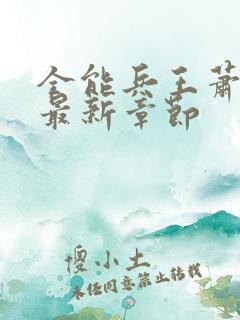 全能兵王萧
最新章节
傻小土
未经同意禁止转载